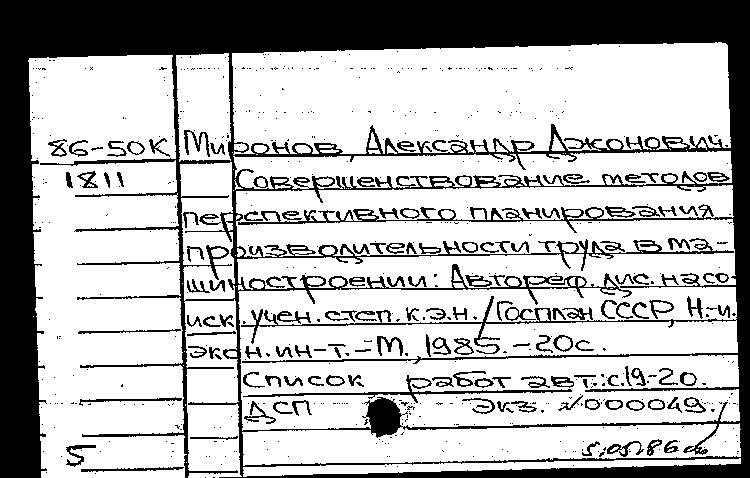 86-50К Миронов, Александр Джонович.
1811 Совершенствование методов
перспективного планирования
производительности труда в ма-
шиностроении: Автореф. дис. на со-
иск. учен. степ. к.э.н. / Госплан СССР, Н.-и.
экон. ин-т. - М., 1985. - 20с.
Список работ авт.: с.19-20.
ДСП Экз. №000049.
5 5,05,86